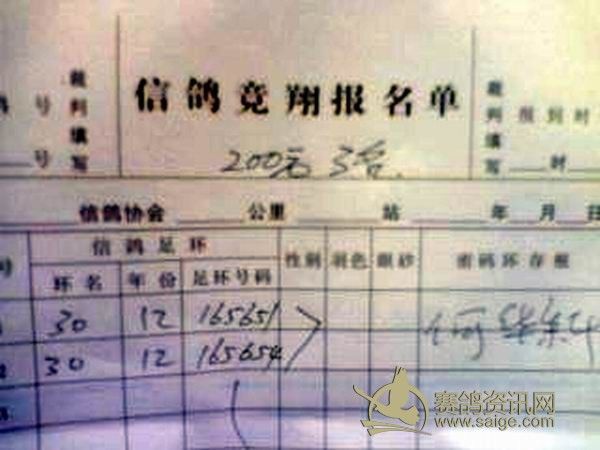 裁判填写
信鸽竞翔报名单
裁判填写
号
报到时
号
200元 3台
时
信鸽协会 公里 站 年 月 日
号
信鸽足环
性别 羽色 眼砂 密码环存根
环名 年份 足环号码
30 12 165651
2 30 12 165654
何
赛鸽资讯网
www.saige.com